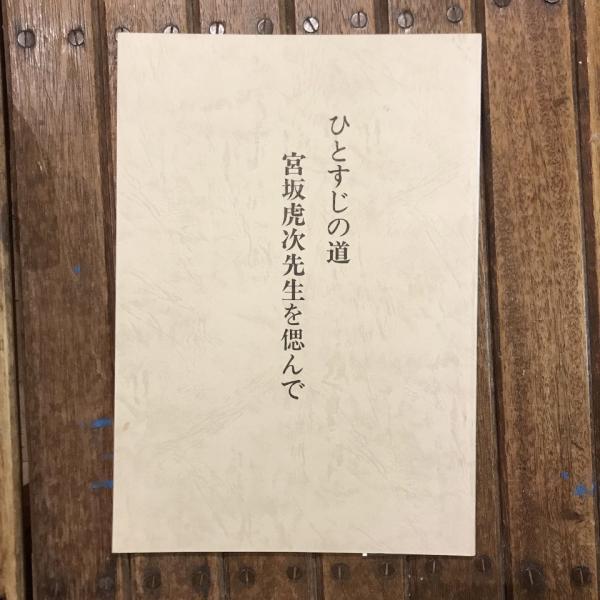 ひとすじの道
宮坂虎次先生を偲んで